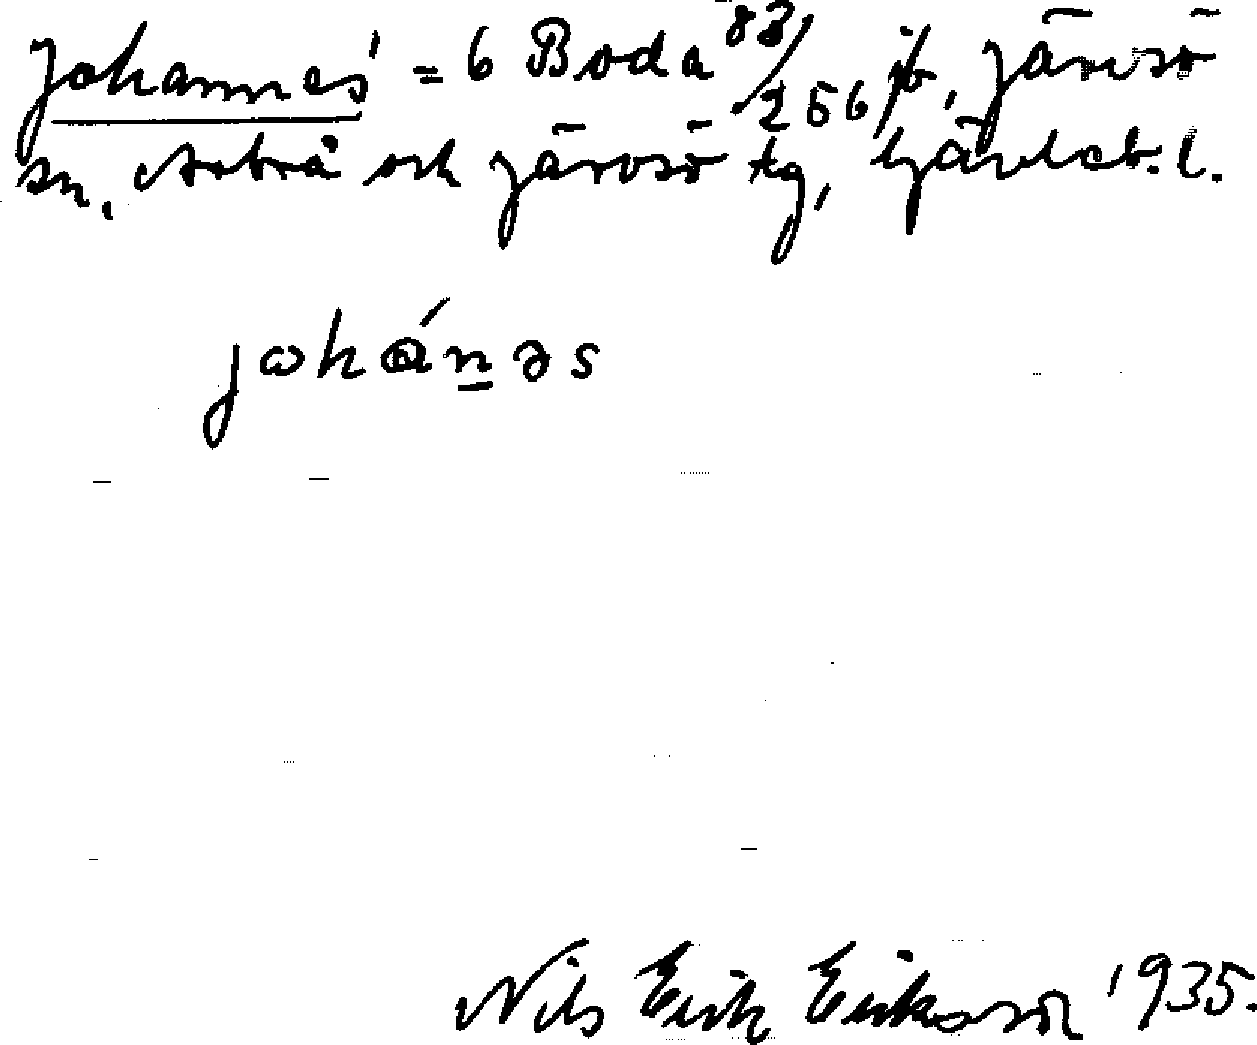 Johannes' = 6 Boda 83/256 jb, Järvsö
sn, Arbrå och Järvsö tg, Gävleb. l.
johánəs
Nils Erik Eriksson 1935.